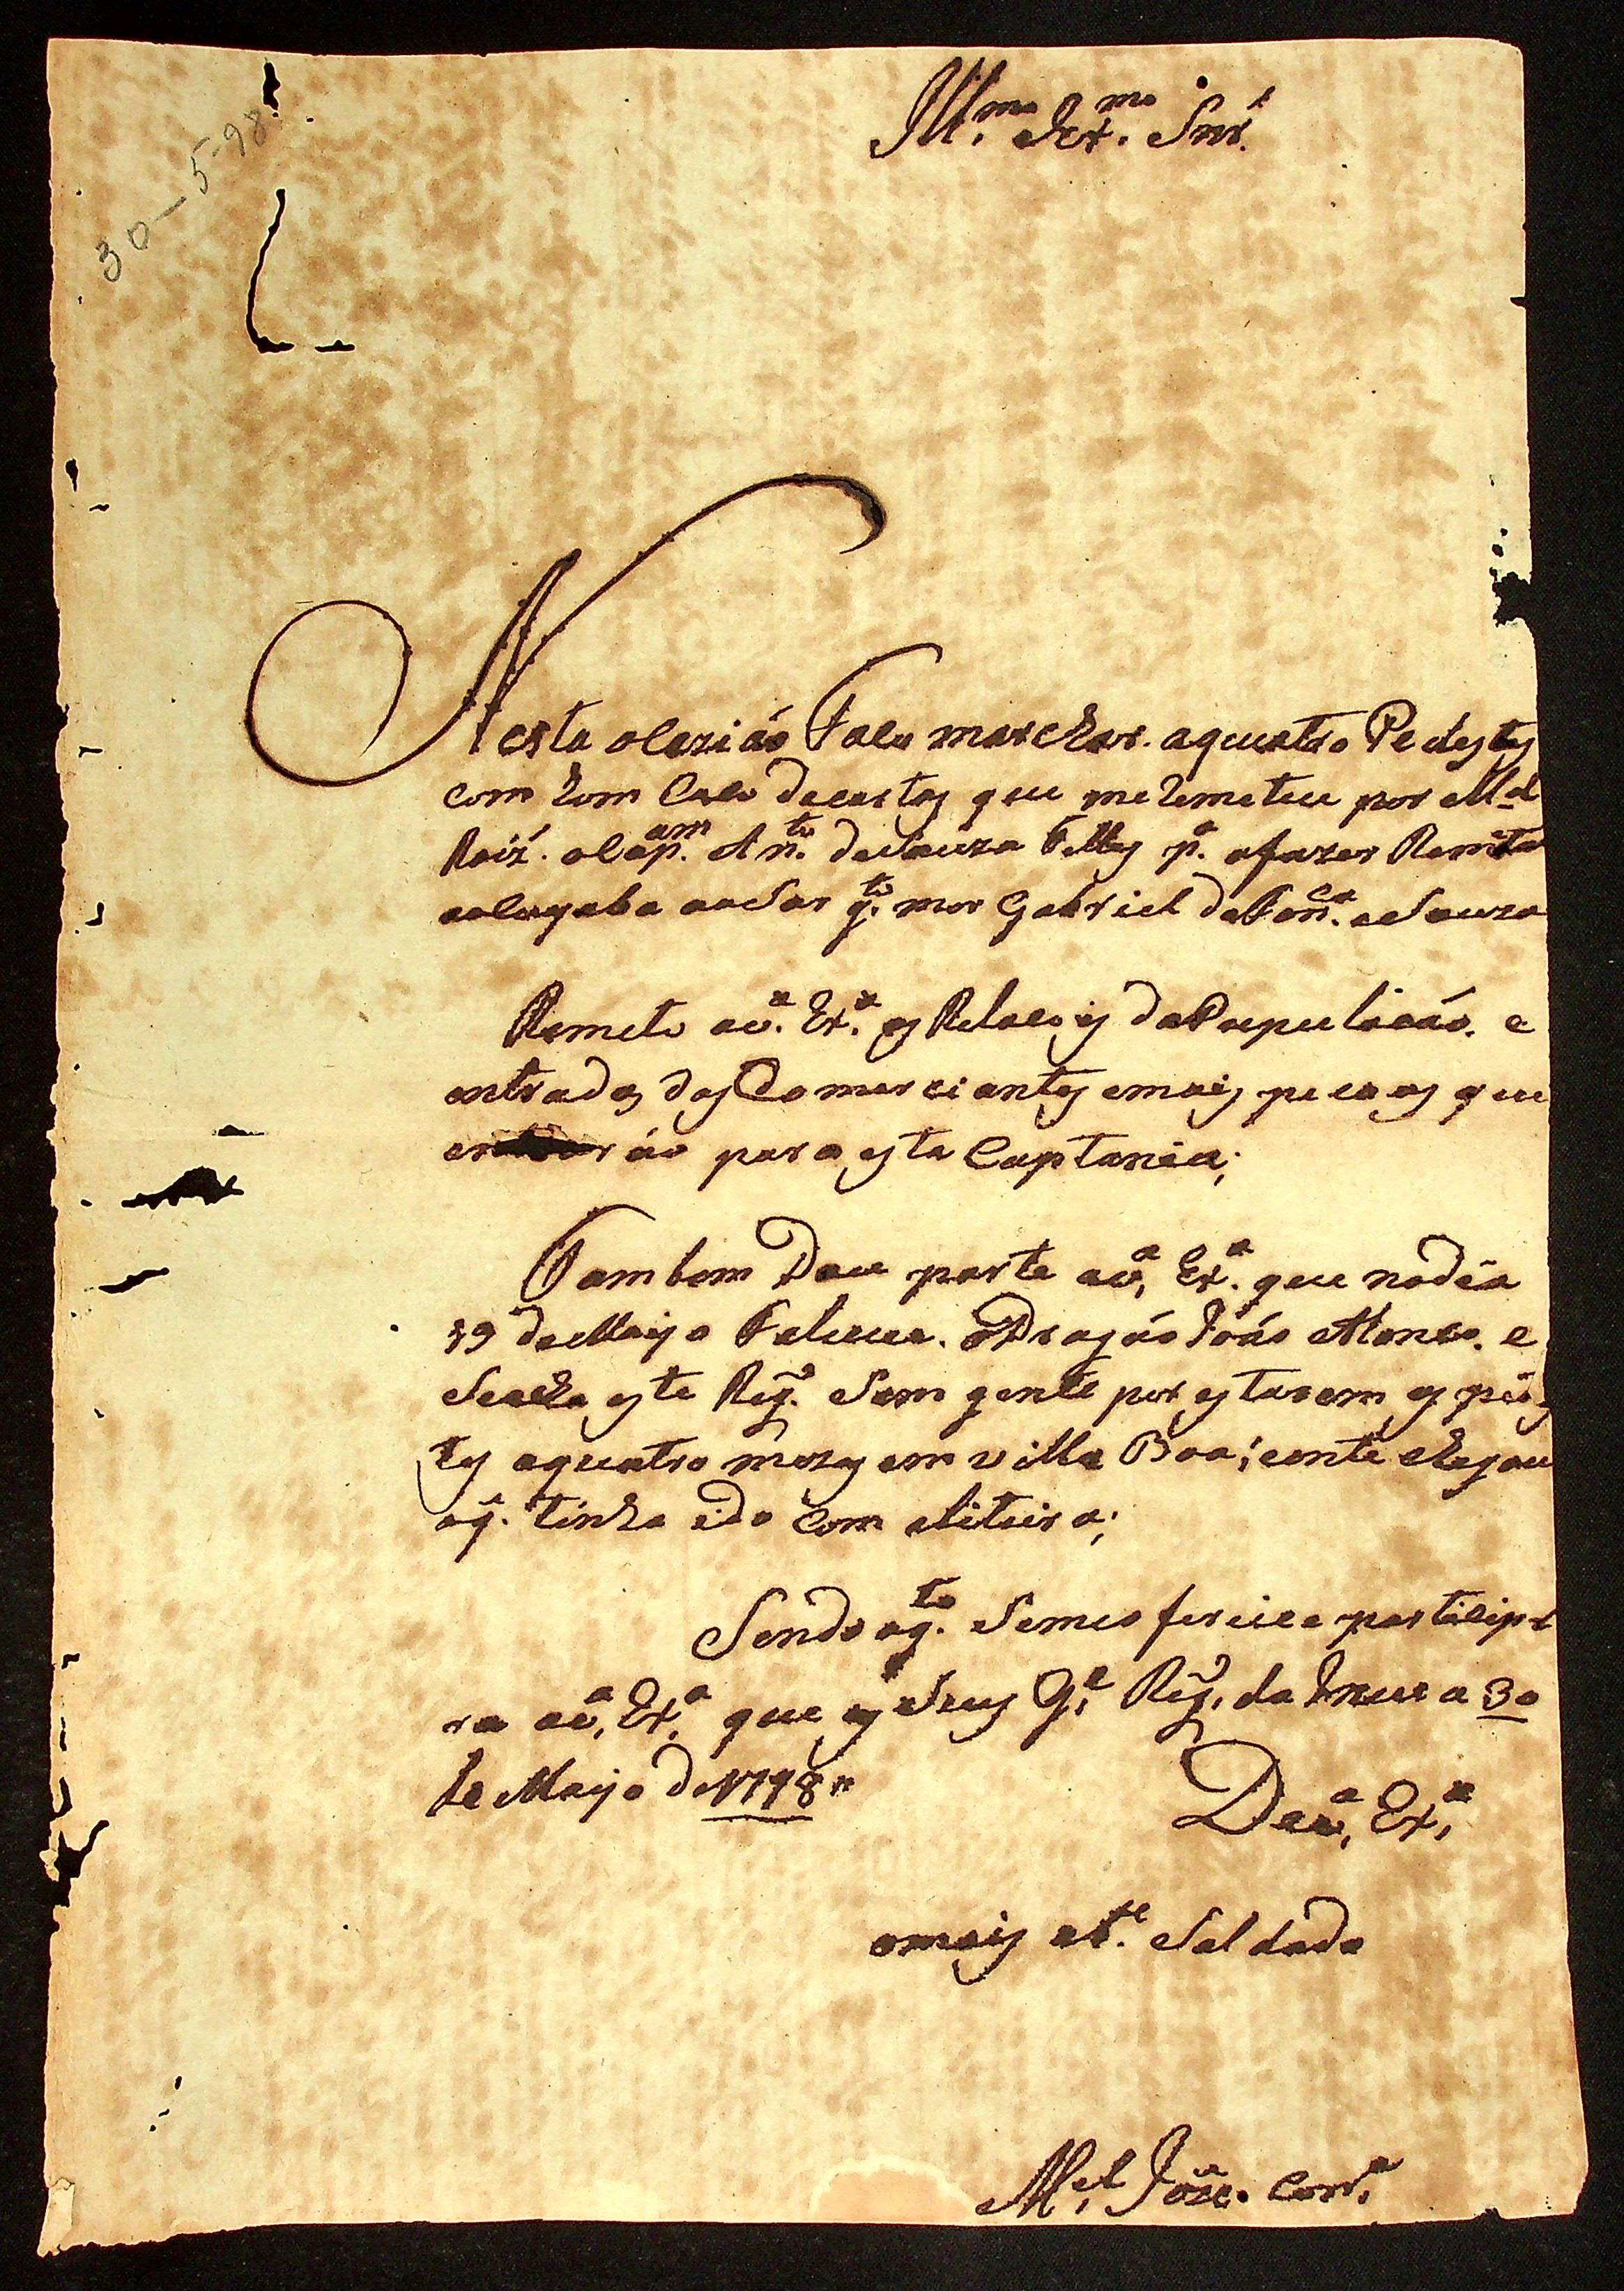 30-5-98
Ill.mo Ex.mo Snr.
Nesta ocazião Faço marchar. aquatro Pedestes
com hom Caxo decartas que meRemeteu por M.el
Roiz. oCap.am An.to deSouza Telles p.a afazer Remeta
aoSar g.to mor Gabriel daFon.ca eSouza
Remeto av.a Ex.a as Relacois daPupulacáo. e
entradas dos Comerciantes emais pecoas que
entrarão para esta Captania;
Tambem Dou parte av.a Ex.a que nodia
19 deMaijo Faleceu. oDragáo Joáo Afonço. e
Seacha este Reg.o Sem gente por estarem os pedes
tes aquatro mezes em villa Boa; eonte chegou
oq. tinha ido Com aLiteira;
Sendo oq.to Semeofereçe partiçipa
ra av.a Ex.a que Ds G.e Reg.o da 30
de Maijo de1798
Dev.a Ex.a
omais at.e Saldado
M.el Joze. Corr.a